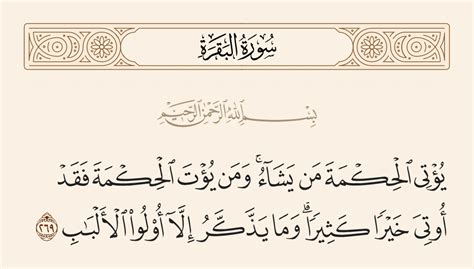 سُورَةُ البَقَرَةِ
بِسْمِ اللَّهِ الرَّحْمَٰنِ الرَّحِيمِ
يُؤْتِي الْحِكْمَةَ مَن يَشَاءُ ۚ وَمَن يُؤْتَ الْحِكْمَةَ فَقَدْ
أُوتِيَ خَيْرًا كَثِيرًا ۗ وَمَا يَذَّكَّرُ إِلَّا أُولُوا الْأَلْبَابِ ٢٦٩